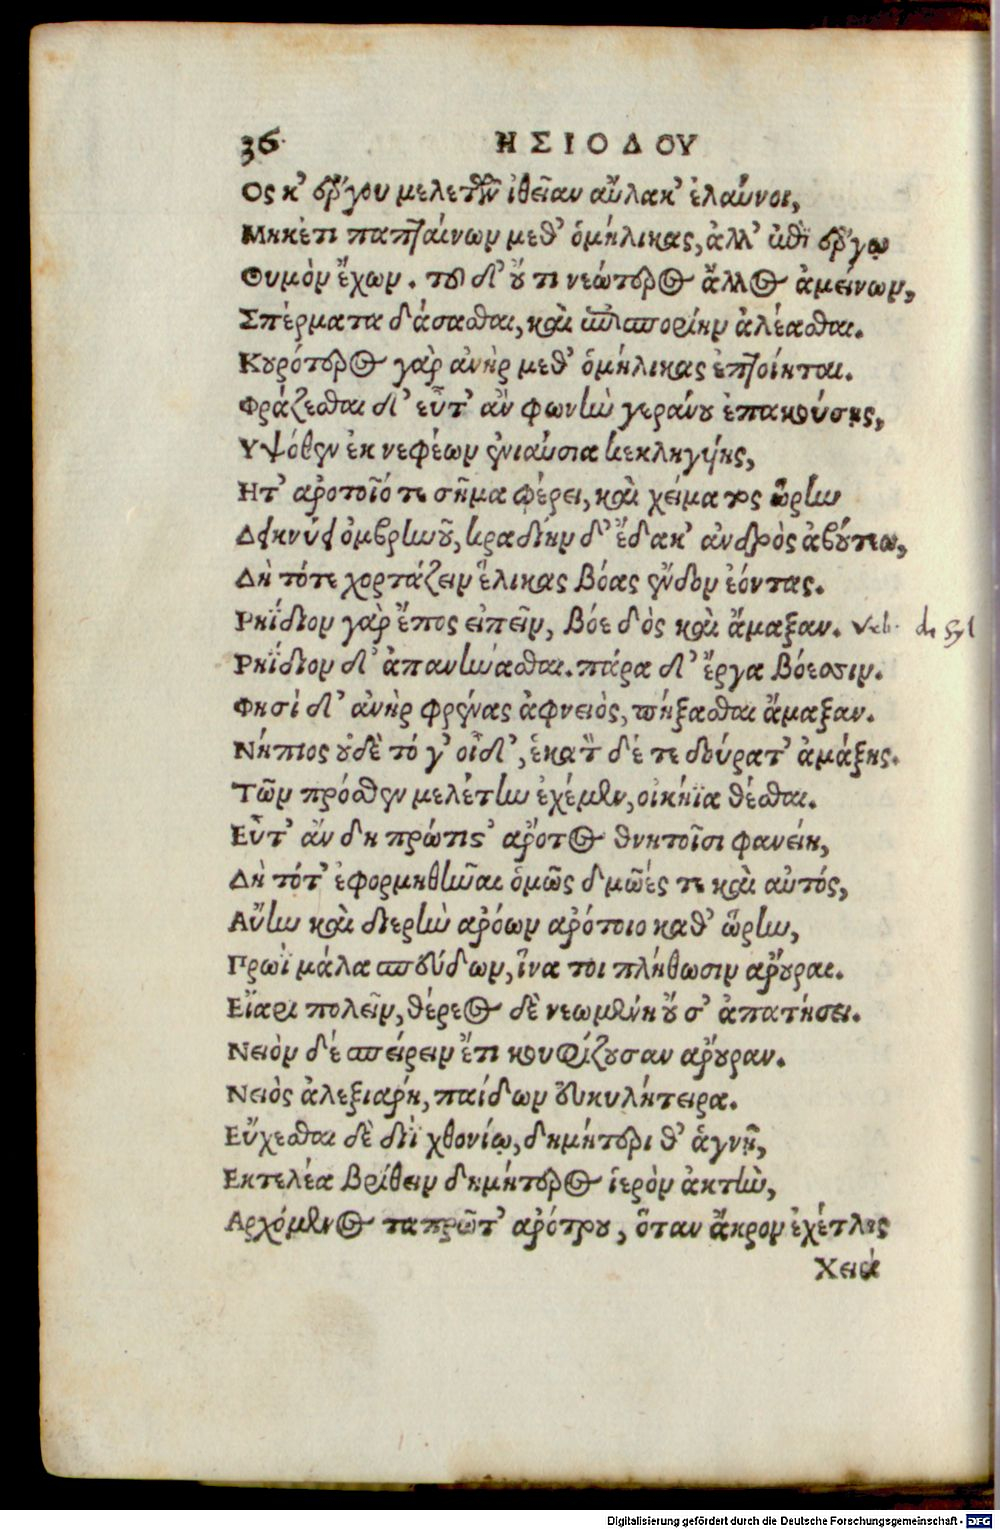 36 ΗΣΙΟΔΟΥ
Ος κ' ἔργου μελετῶν ἰθεῖαν αὔλακ' ἐλαύνοι,
Μηκέτι παπταίνων μεθ' ὁμήλικας, ἀλλ' ἐπὶ ἔργῳ
Θυμὸν ἔχων. τοῦ δ' οὔ τι νεώτερος ἄλλος ἀμείνων,
Σπέρματα δάσασθαι, καὶ ἐπισπορίην ἀλέασθαι.
Κουρότερος γὰρ ἀνὴρ μεθ' ὁμήλικας ἐπτοίηται.
Φράζεσθαι δ' εὖτ' ἂν φωνὴν γεράνου ἐπακούσῃς,
Υψόθεν ἐκ νεφέων ἐνιαύσια κεκληγυίης,
Ητ' ἀροτοῖό τε σῆμα φέρει, καὶ χείματος ὥρην
Δεικνύει ὀμβρηνοῦ, κραδίην δ' ἔδακ' ἀνδρὸς ἀβούτεω,
Δὴ τότε χορτάζειν ἕλικας βόας ἔνδον ἐόντας.
Ρηΐδιον γὰρ ἔπος εἰπεῖν, βόε δὸς καὶ ἅμαξαν.
Ρηΐδιον δ' ἀπανήνασθαι. πάρα δ' ἔργα βόεσσιν.
Φησὶ δ' ἀνὴρ φρένας ἀφνειὸς, πήξασθαι ἅμαξαν.
Νήπιος οὐδὲ τό γ' οἶδ', ἑκατὸν δέ τε δούρατ' ἁμάξης.
Τῶν πρόσθεν μελέτην ἐχέμεν, οἰκήϊα θέσθαι.
Εὖτ' ἂν δὴ πρώτιστ' ἄροτος θνητοῖσι φανείη,
Δὴ τότ' ἐφορμηθῆναι ὁμῶς δμῶές τε καὶ αὐτός,
Αὔην καὶ διερὴν ἀρόων ἀρότοιο καθ' ὥρην,
Πρωῒ μάλα σπεύδων, ἵνα τοι πλήθωσιν ἄρουραι.
Εἴαρι πολεῖν, θέρεος δὲ νεωμένη οὔ σ' ἀπατήσει.
Νειὸν δέ σπείρειν ἔτι κουφίζουσαν ἄρουραν.
Νειὸς ἀλεξιαρή, παίδων εὐκηλήτειρα.
Εὔχεσθαι δὲ διῒ χθονίῳ, δημήτερι θ' ἁγνῇ,
Εκτελέα βρίθειν δημήτερος ἱερὸν ἀκτὴν,
Αρχόμενος ταπρῶτ' ἀρότρου, ὅταν ἄκρον ἐχέτλης
Χειρὶ
Digitalisierung gefördert durch die Deutsche Forschungsgemeinschaft - DFG